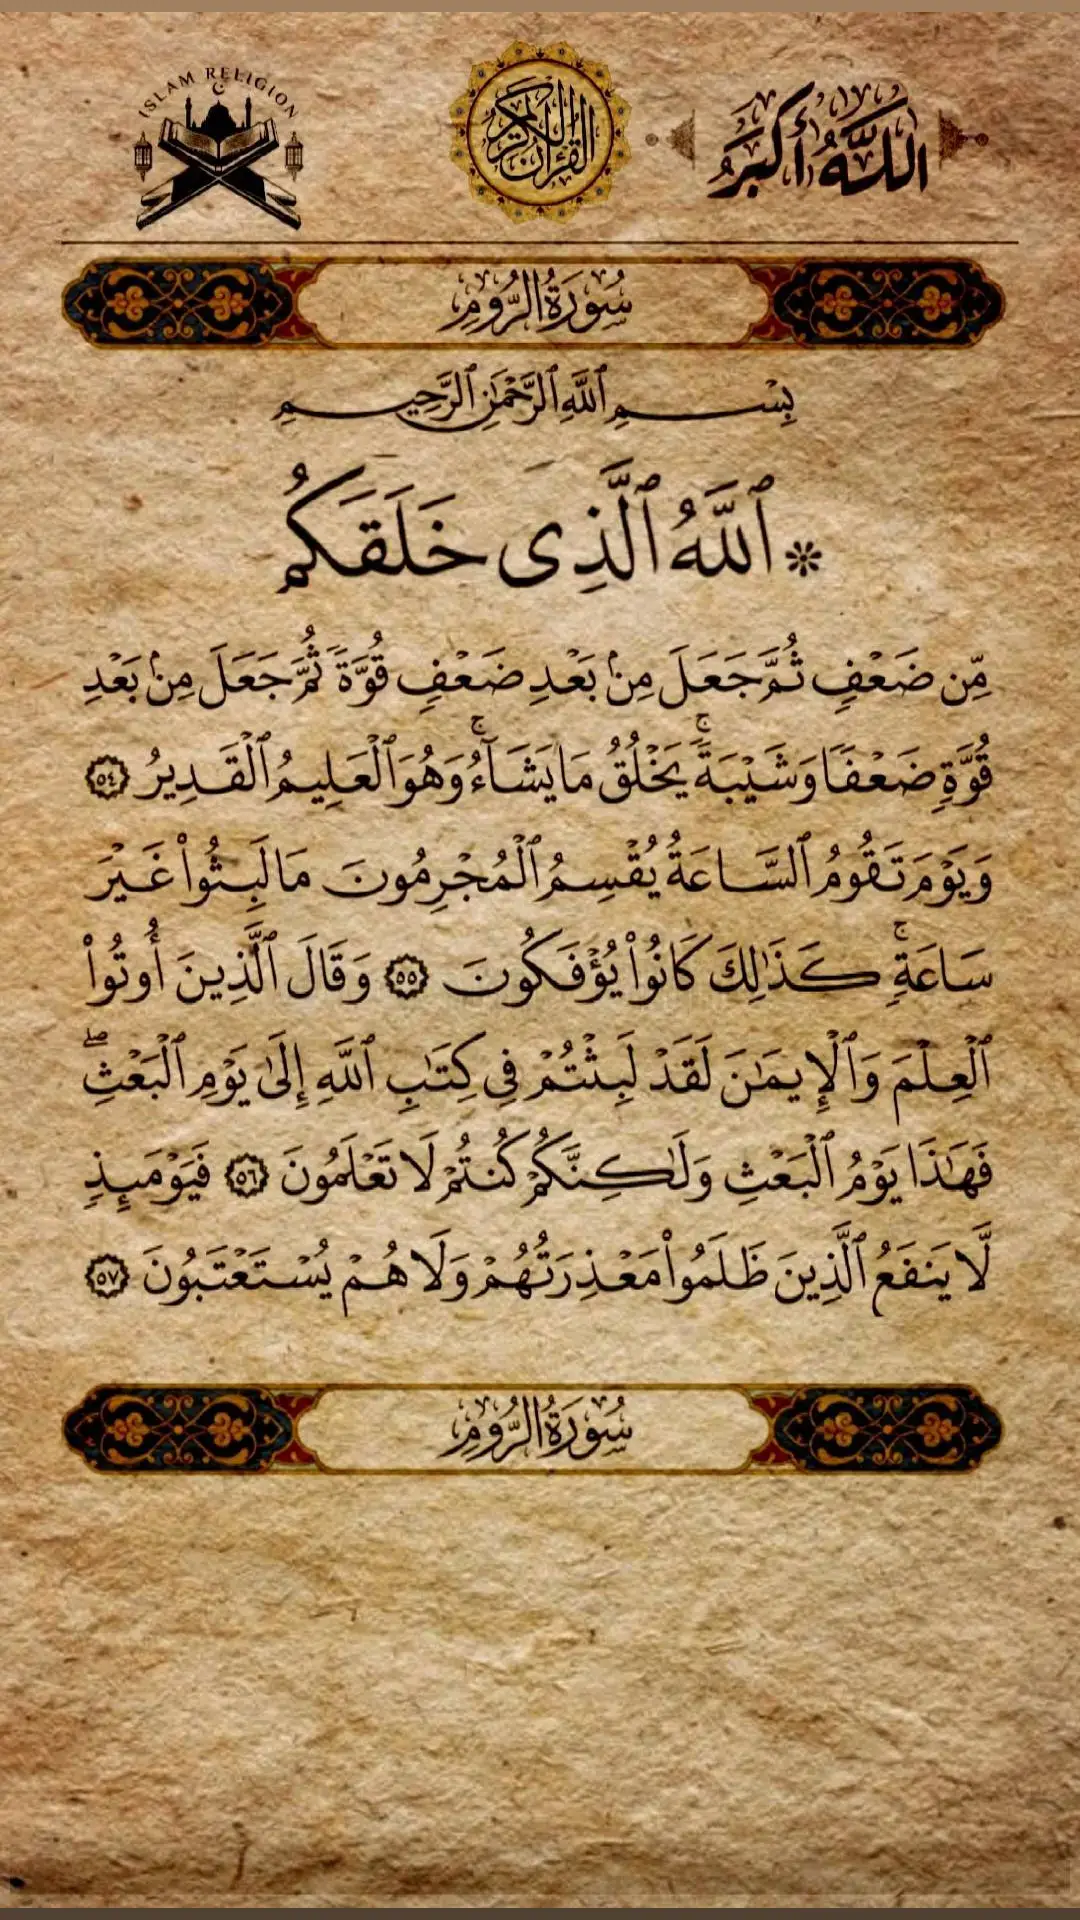 ISLAM RELIGION
القرآن الكريم
اللَّهُ أَكْبَرُ
سُورَةُ الرُّومِ
بِسْمِ ٱللَّهِ ٱلرَّحْمَٰنِ ٱلرَّحِيمِ
۞ ٱللَّهُ ٱلَّذِى خَلَقَكُم
مِّن ضَعْفٍ ثُمَّ جَعَلَ مِنۢ بَعْدِ ضَعْفٍ قُوَّةً ثُمَّ جَعَلَ مِنۢ بَعْدِ
قُوَّةٍ ضَعْفًا وَشَيْبَةً ۚ يَخْلُقُ مَا يَشَآءُ ۚ وَهُوَ ٱلْعَلِيمُ ٱلْقَدِيرُ ٥٤
وَيَوْمَ تَقُومُ ٱلسَّاعَةُ يُقْسِمُ ٱلْمُجْرِمُونَ مَا لَبِثُوا۟ غَيْرَ
سَاعَةٍ ۚ كَذَٰلِكَ كَانُوا۟ يُؤْفَكُونَ ٥٥ وَقَالَ ٱلَّذِينَ أُوتُوا۟
ٱلْعِلْمَ وَٱلْإِيمَٰنَ لَقَدْ لَبِثْتُمْ فِى كِتَٰبِ ٱللَّهِ إِلَىٰ يَوْمِ ٱلْبَعْثِ ۖ
فَهَٰذَا يَوْمُ ٱلْبَعْثِ وَلَٰكِنَّكُمْ كُنتُمْ لَا تَعْلَمُونَ ٥٦ فَيَوْمَئِذٍ
لَّا يَنفَعُ ٱلَّذِينَ ظَلَمُوا۟ مَعْذِرَتُهُمْ وَلَا هُمْ يُسْتَعْتَبُونَ ٥٧
سُورَةُ الرُّومِ